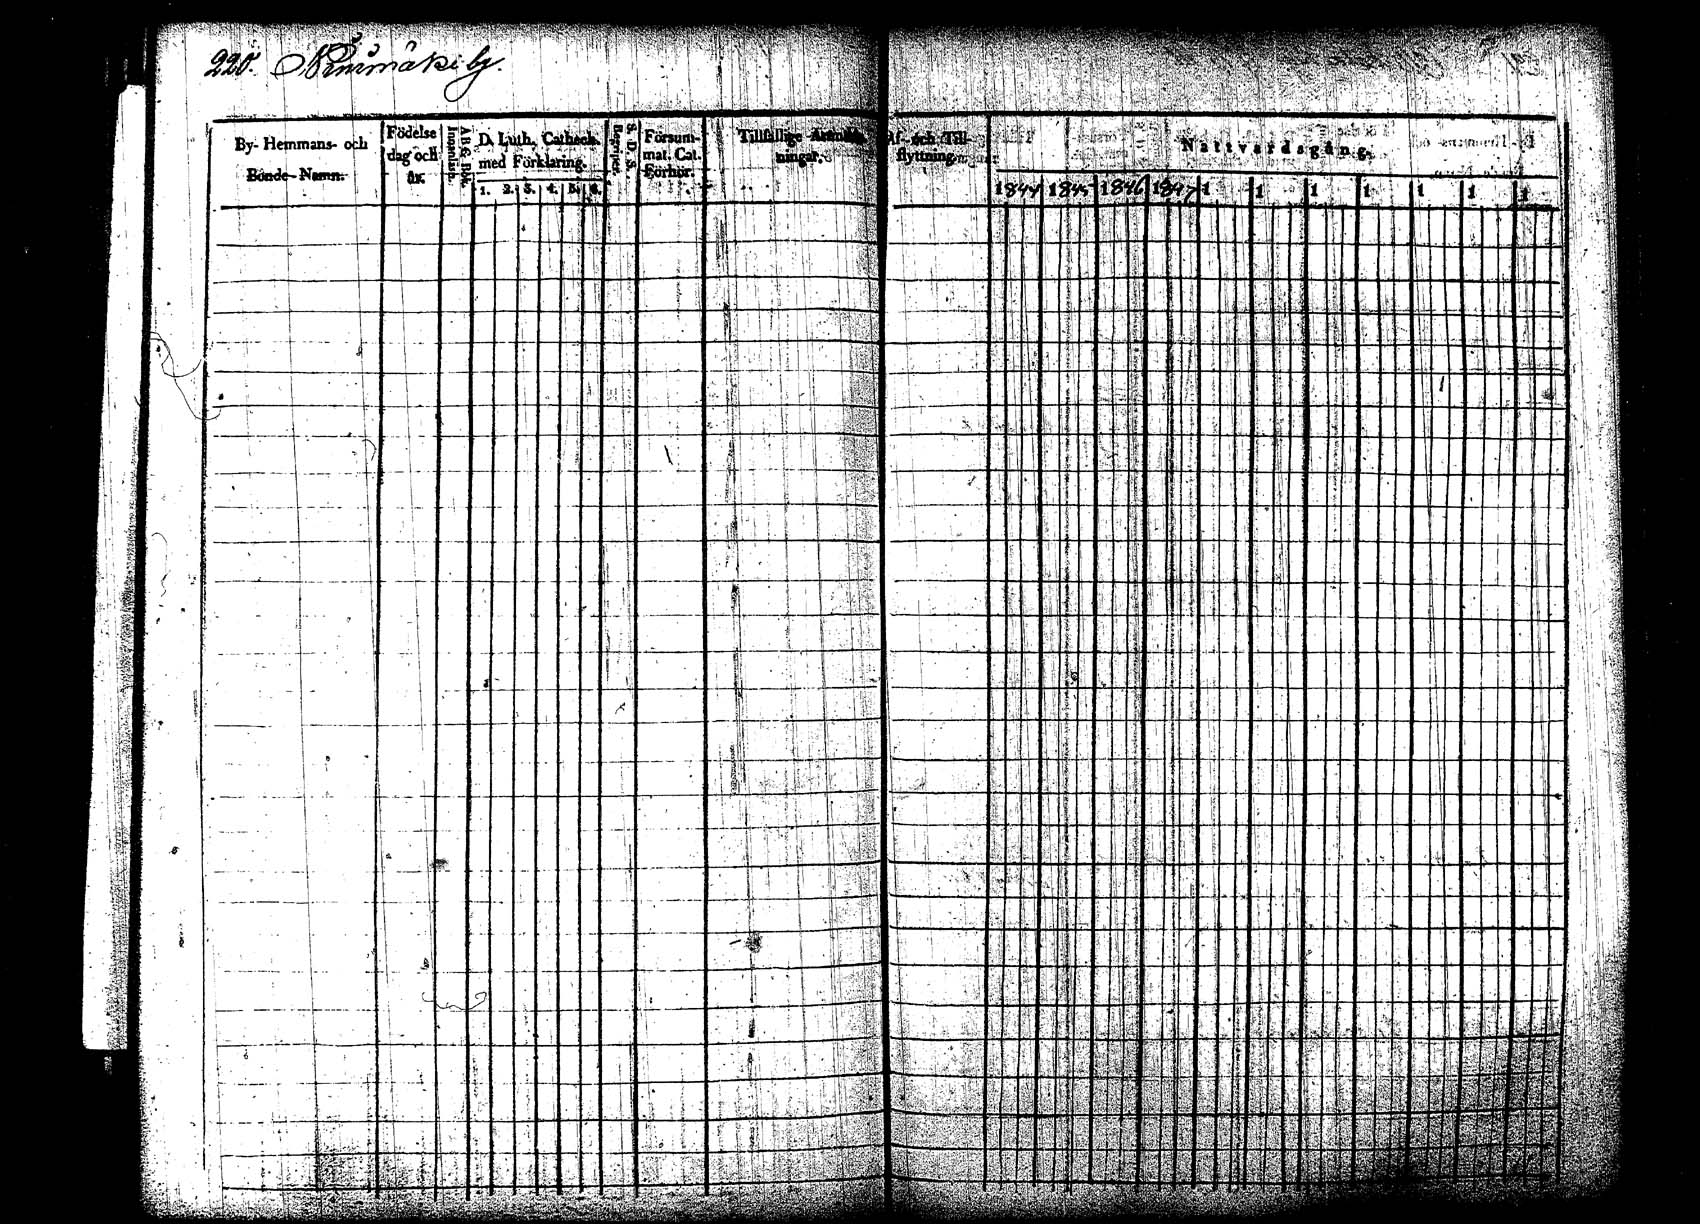 220. Nurmäki by.
By- Hemmans- och Bonde- Namn.
Födelse dag och år.
A B C Bok. Innanläsn.
D. Luth. Cathech. med Förklaring.
1. 2. 3. 4. 5. 6.
S. D. S. Begrepet.
Försummat. Cat. Förhör.
Tillfällige Anmärkningar.
Af- och Tillflyttning.
Nattvardsgång.
1844 1845 1846 1847 1 1 1 1 1 1 1